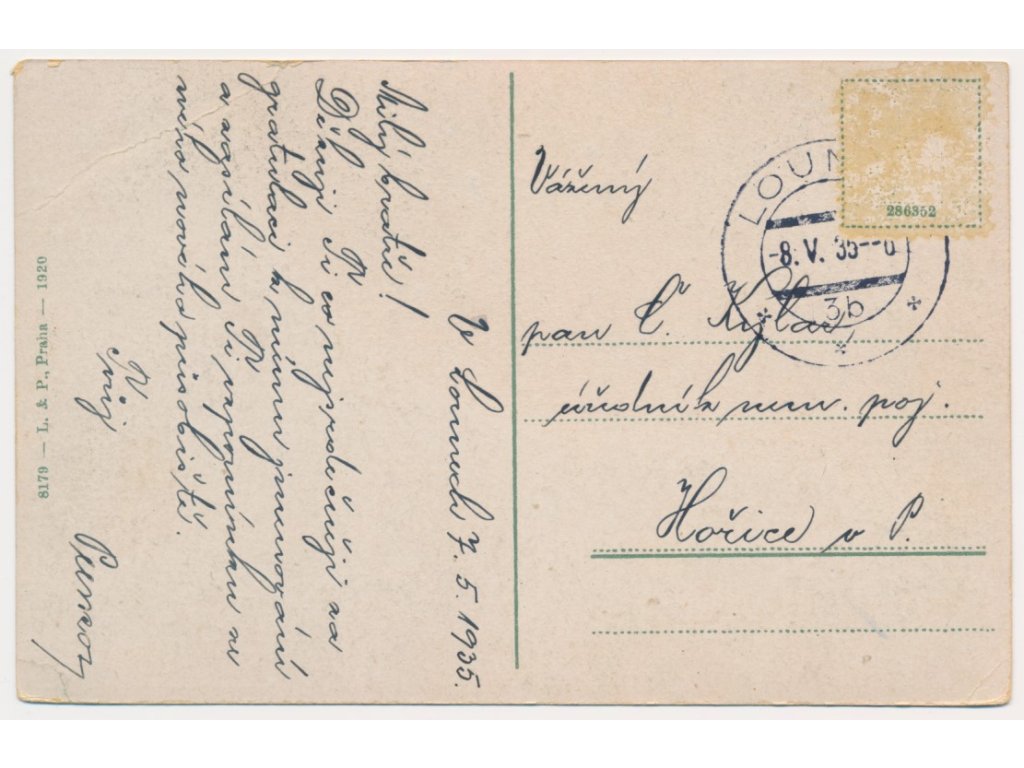 V Lounech 7. 5. 1935.
Milý bratře!
Děkuji Ti co nejsrdečněji za
gratulaci k mému jmenování
a zasílám Ti vzpomínku z
mého nového působiště.
Tvůj
8179 — L. & P., Praha — 1920
Vážený
pan Č. Kyzlar
úředník nem. poj.
Hořice v P.
LOUN
-8. V. 35
3b
286352